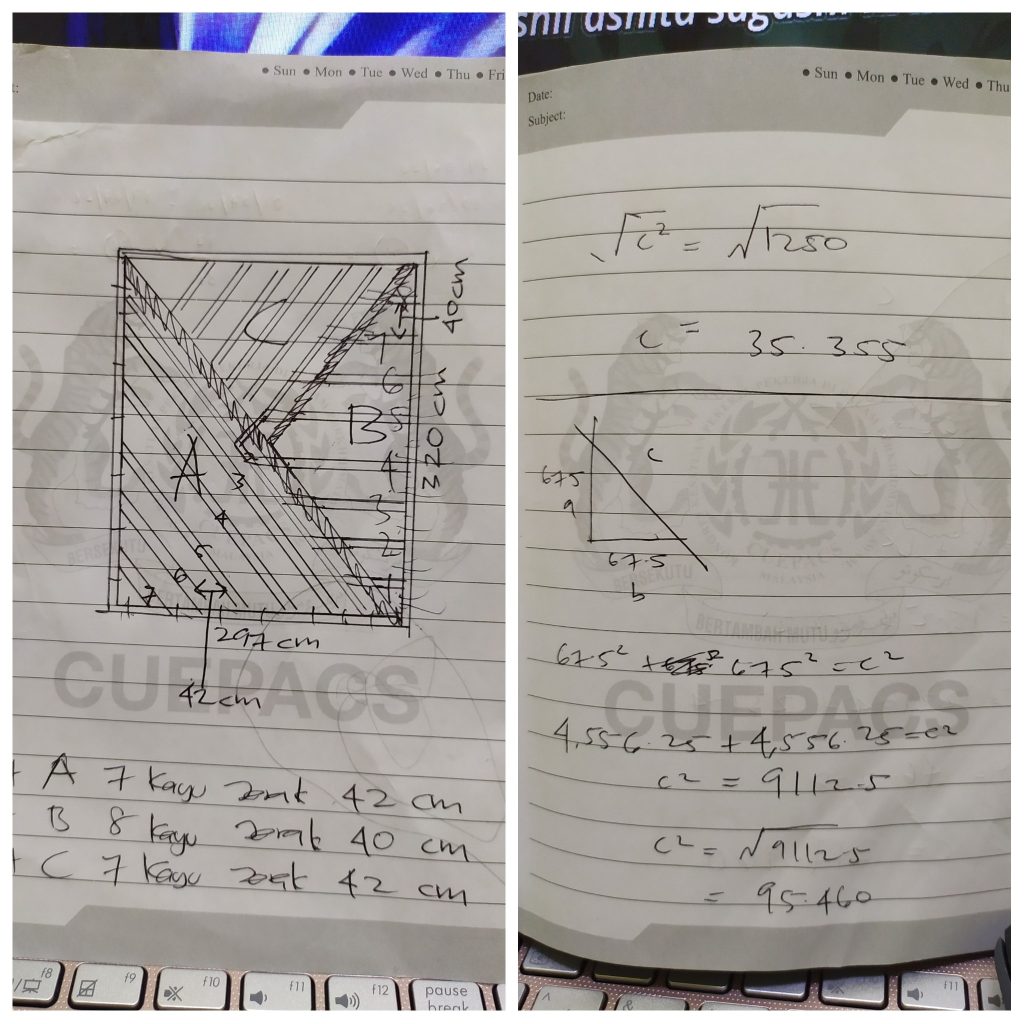 ● Sun ● Mon ● Tue ● Wed ● Thu ● Fri
C
40cm
7
6
B
5
A
4
320 cm
3
3
4
2
5
1
6
7
297 cm
42 cm
CUEPACS
A 7 kayu jarak 42 cm
B 8 kayu jarak 40 cm
C 7 kayu jarak 42 cm
f8 f9 f10 f11 f12 pause
break
● Sun ● Mon ● Tue ● Wed ● Thu
Date:
Subject:
√c² = √1250
c = 35.355
c
67.5
a
67.5
b
BERSEKUTU
BERTAMBAH MUTU
67.5² + 67.5² = c²
CUEPACS
4,556.25 + 4,556.25 = c²
c² = 9112.5
c² = √9112.5
= 95.460
f11